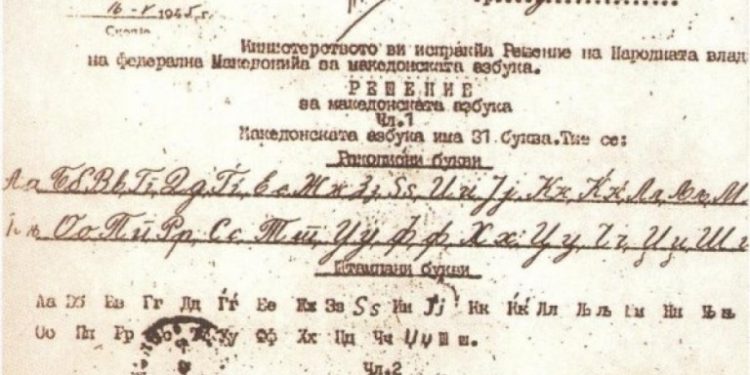 16-V 1945 г.
Скопје
Министерството ви испраќа Решение на Народната влад
на федерална Македонија за македонската азбука.
РЕШЕНИЕ
за македонската азбука
Чл.1
Македонската азбука има 31 буква. Тие се:
Ракописни букви
Аа Бб Вв Гг Дд Ѓѓ Ее Жж Зз Ѕѕ Ии Јј Кк Ќќ Лл Љљ М
Њњ Оо Пп Рр Сс Тт Уу Фф Хх Цц Чч Џџ Шш
Штампани букви
Аа Бб Вв Гг Дд Ѓѓ Ее Жж Зз Ѕѕ Ии Јј Кк Ќќ Лл Љљ Мм Нн Њњ
Оо Пп Рр Сс Тт Уу Фф Хх Цц Чч Џџ Шш.
Чл.2